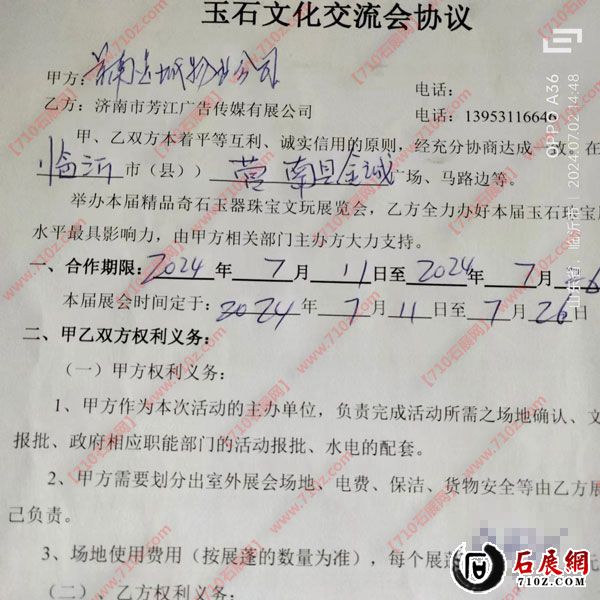 玉石文化交流会协议
甲方：莒南金城物业公司
电话：
乙方：济南市芳江广告传媒有限公司
电话：13953116646
甲、乙双方本着平等互利、诚实信用的原则，经充分协商达成一致。在
临沂市（县））莒南县金城广场、马路边等。
举办本届精品奇石玉器珠宝文玩展览会，乙方全力办好本届玉石珠宝展
水平最具影响力，由甲方相关部门主办方大力支持。
一、合作期限：2024年7月11日至2024年7月26
本届展会时间定于：2024年7月11日至7月26日
二、甲乙双方权利义务：
（一）甲方权利义务：
1、甲方作为本次活动的主办单位，负责完成活动所需之场地确认、文
报批、政府相应职能部门的活动报批、水电的配套。
2、甲方需要划分出室外展会场地、电费、保洁、货物安全等由乙方展
己负责。
3、场地使用费用（按展蓬的数量为准），每个展蓬
元
（二）、乙方权利义务：
OPPO A36
2024.07.02 14:48
山东省，临沂市
【710石展网】www.710z.com
石展网
710Z.COM